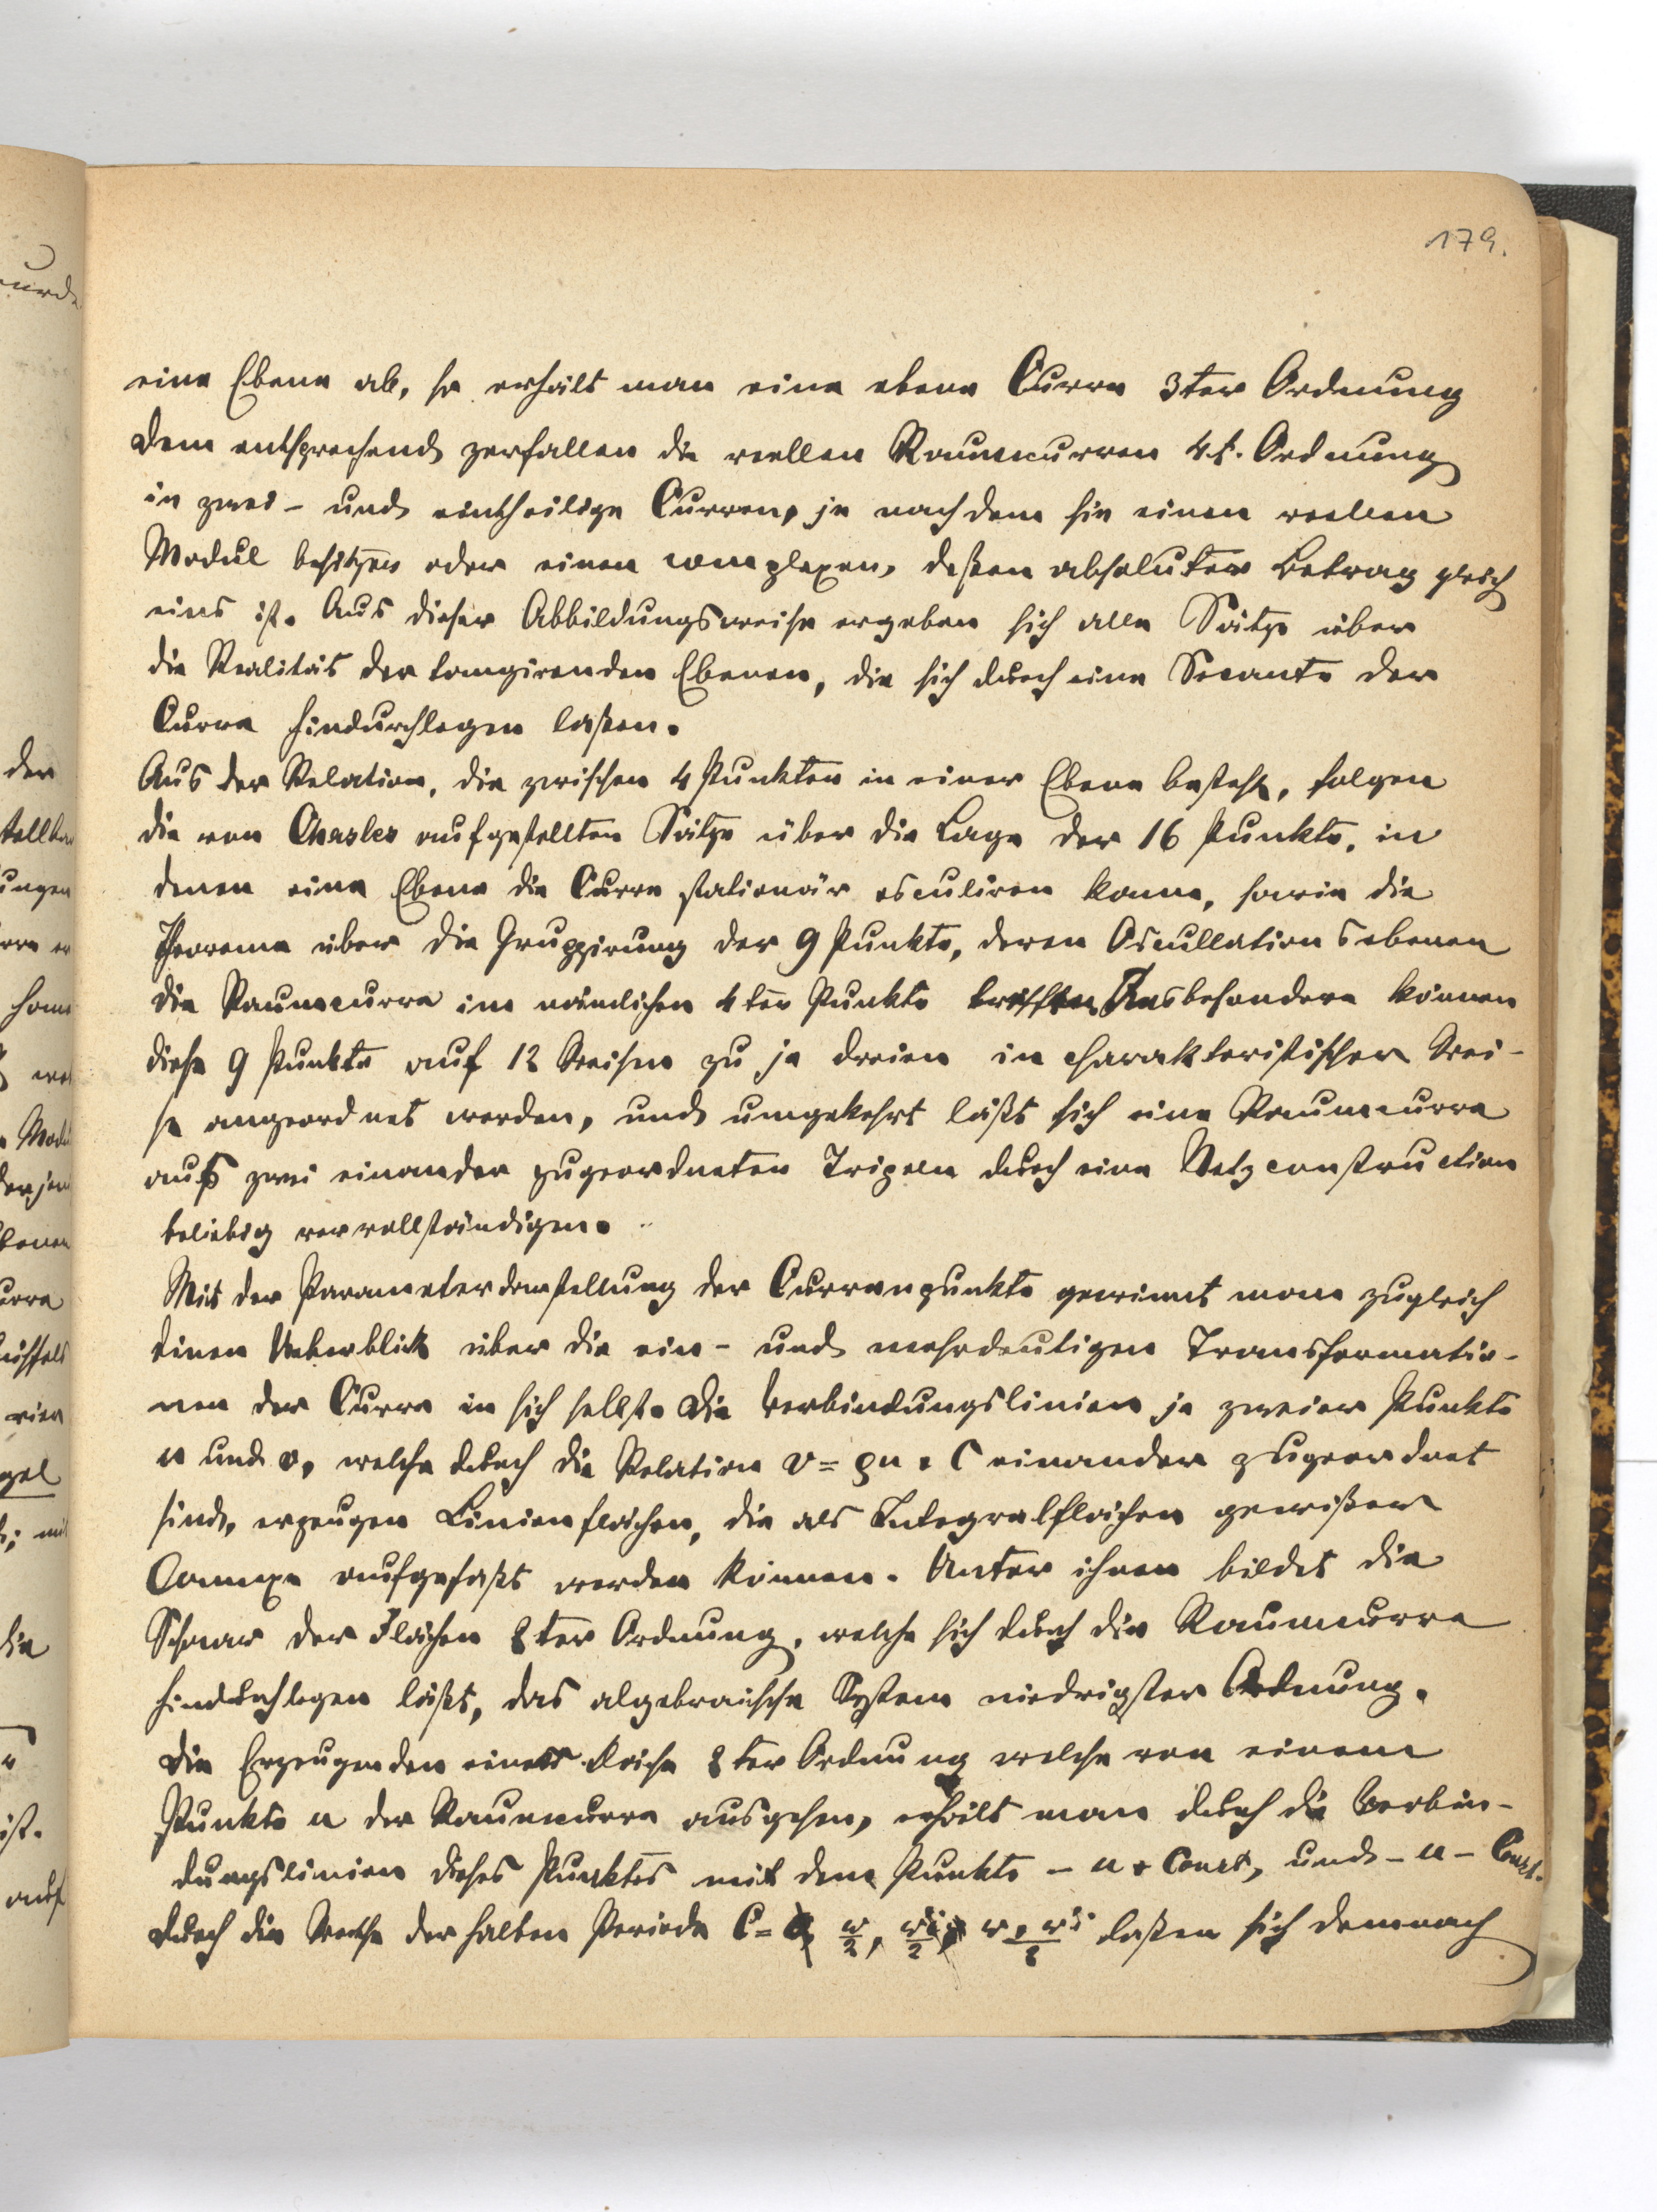 179.
eine Ebene ab, so erhält man eine ebene Curve 3ter Ordnung
dem entsprechend zerfallen die reellen Raumcurven 4t. Ordnung
in zwei- und eintheilige Curven, je nachdem sie einen reellen
Modul besitzen oder einen complexen, deßen absoluter Betrag gleich
eins ist. Aus dieser Abbildungsweise ergeben sich alle Sätze über
die Realität der tangirenden Ebenen, die sich durch eine Secante der
Curve hindurchlegen laßen.
Aus der Relation, die zwischen 4 Punkten in einer Ebene besteht, folgen
die von Chasles aufgestellten Sätze über die Lage der 16 Punkte, in
denen eine Ebene die Curve stationär osculiren kann, sowie die
Theoreme über die Gruppirung der 9 Punkte, deren Oscullationsebenen
die Raumcurve im nämlichen 4ten Punkte treffen Insbesondere können
diese 9 Punkte auf 12 Weisen zu je dreien in charakteristischer Wei-
se angeordnet werden, und umgekehrt läßt sich eine Raumcurve
aus zwei einander zugeordneten Tripeln durch eine Netzconstruction
beliebig vervollständigen.
Mit der Parameterdarstellung der Curvenpunkte gewinnt man zugleich
einen Ueberblick über die ein- und mehrdeutigen Transformatio-
nen der Curve in sich selbst. Die Verbindungslinien je zweier Punkte
u und v, welche durch die Relation v = ρu + C einander zugeordnet
sind, erzeugen Linienflächen, die als Integralflächen gewißer
Connexe aufgefaßt werden können. Unter ihnen bildet die
Schaar der Flächen 2ter Ordnung, welche sich durch die Raumcurve
hindurchlegen läßt, das algebraische System niedrigster Ordnung.
Die Erzeugenden einer Fläche 2ter Ordnung welche von einem
Punkte u der Raumcurve ausgehen, erhält man durch die Verbin-
dungslinien dieses Punktes mit dem Punkte - u + Const, und - u - Const.
Durch die Werthe der halben Periode C = 0, w/2, w'/2, w + w'/2 laßen sich demnach